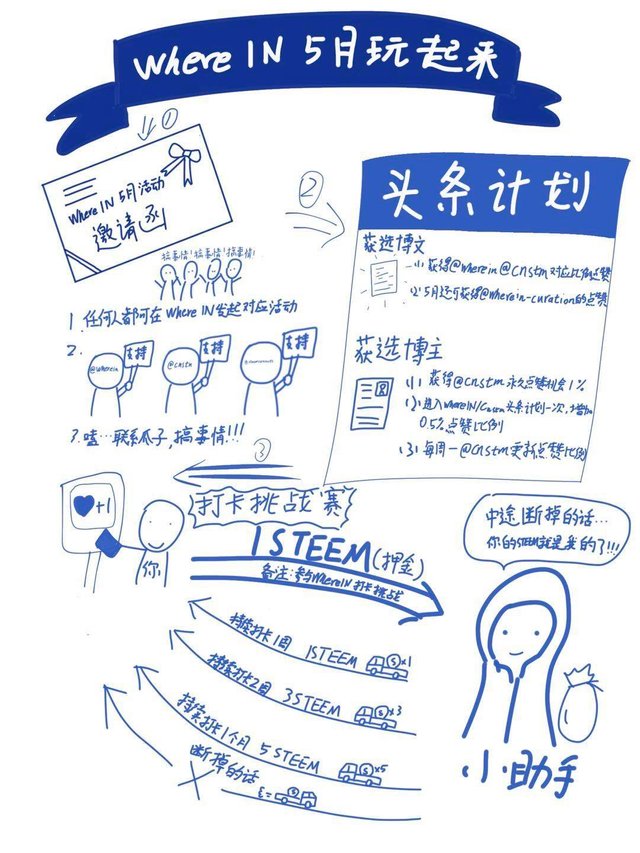 Where IN 5月玩起来
①
Where IN 5月活动
邀请函
搞事情!搞事情!搞事情!
1. 任何人都可在 Where IN发起对应活动
2.
支持
@wherein
支持
@cnstm
支持
3. 嗑…联系瓜子,搞事情!!!
②
头条计划
获选博文
(1) 获得@wherein @cnstm 对应比例点赞
(2) 5月还可获得@wherein-curation的点赞
获选博主
(1) 获得@cnstm永久点赞机会1%
(2) 进入whereIN/cnstm头条计划一次,增加
0.5%点赞比例
(3) 每周一@cnstm更新点赞比例
③
打卡挑战赛
+1
你
1STEEM(押金)
备注:参与WhereIN打卡挑战
中途断掉的话…
你的STEEM就是我的了!!!
持续打卡1周 1STEEM
$×1
持续打卡2周 3STEEM
$×3
持续打卡1个月 5STEEM
$×5
断掉的话
$
小助手